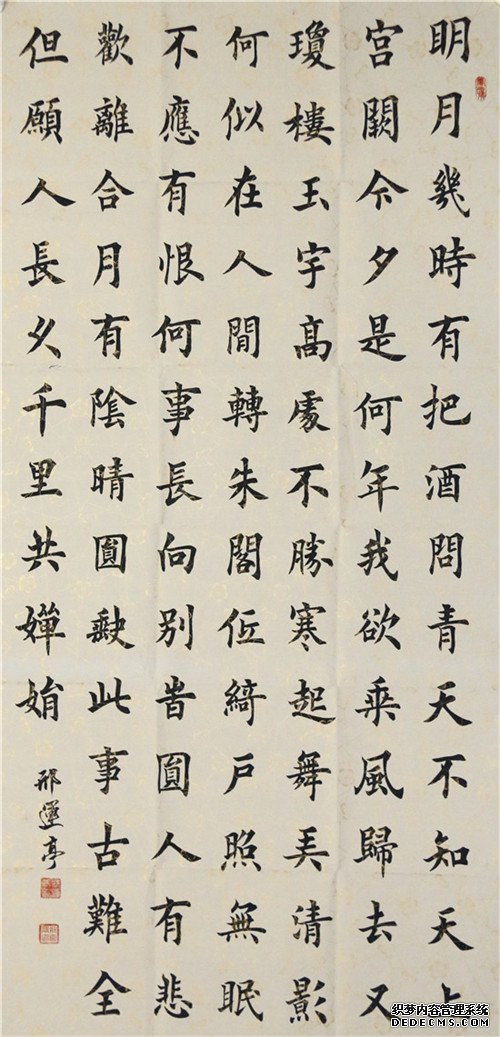 明月幾時有把酒問青天不知天上
宮闕今夕是何年我欲乘風歸去又
瓊樓玉宇高處不勝寒起舞弄清影
何似在人間轉朱閣低綺戶照無眠
不應有恨何事長向別旹圓人有悲
歡離合月有陰晴圓缺此事古難全
但願人長久千里共嬋娟
邢運亭
织梦内容管理系统
DEDECMS.COM